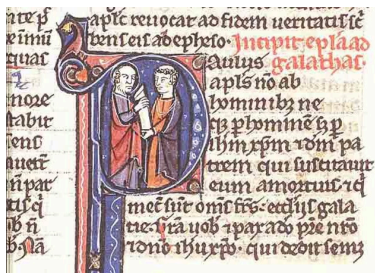 ite p
quas
nore
stabit
aplic̄ reuocat ad fidem ueritatis sc̄
bens eis ab epheso. Incipit epl̄a ad
Paulus galathas.
apl̄s nō ab
hominibȝ ne
qȝ ꝑ hominē sȝ ꝑ
ihm̄ xp̄m ⁊ dm̄ pa
trem qui suscitauit
eum a mortuis ⁊ q̄
mecū sūt om̄s fr̄s. eccl̄iis gala
tie. Gr̄a uob̄ ⁊ pax a dō p̄re nr̄o
⁊ dn̄o ihū xp̄o. qui dedit semꝫ